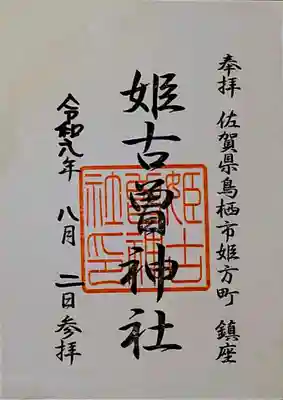 奉拝 佐賀県鳥栖市姫方町 鎮座
姫古曽神社
姫古曽神社印
令和六年 八月 二日参拝